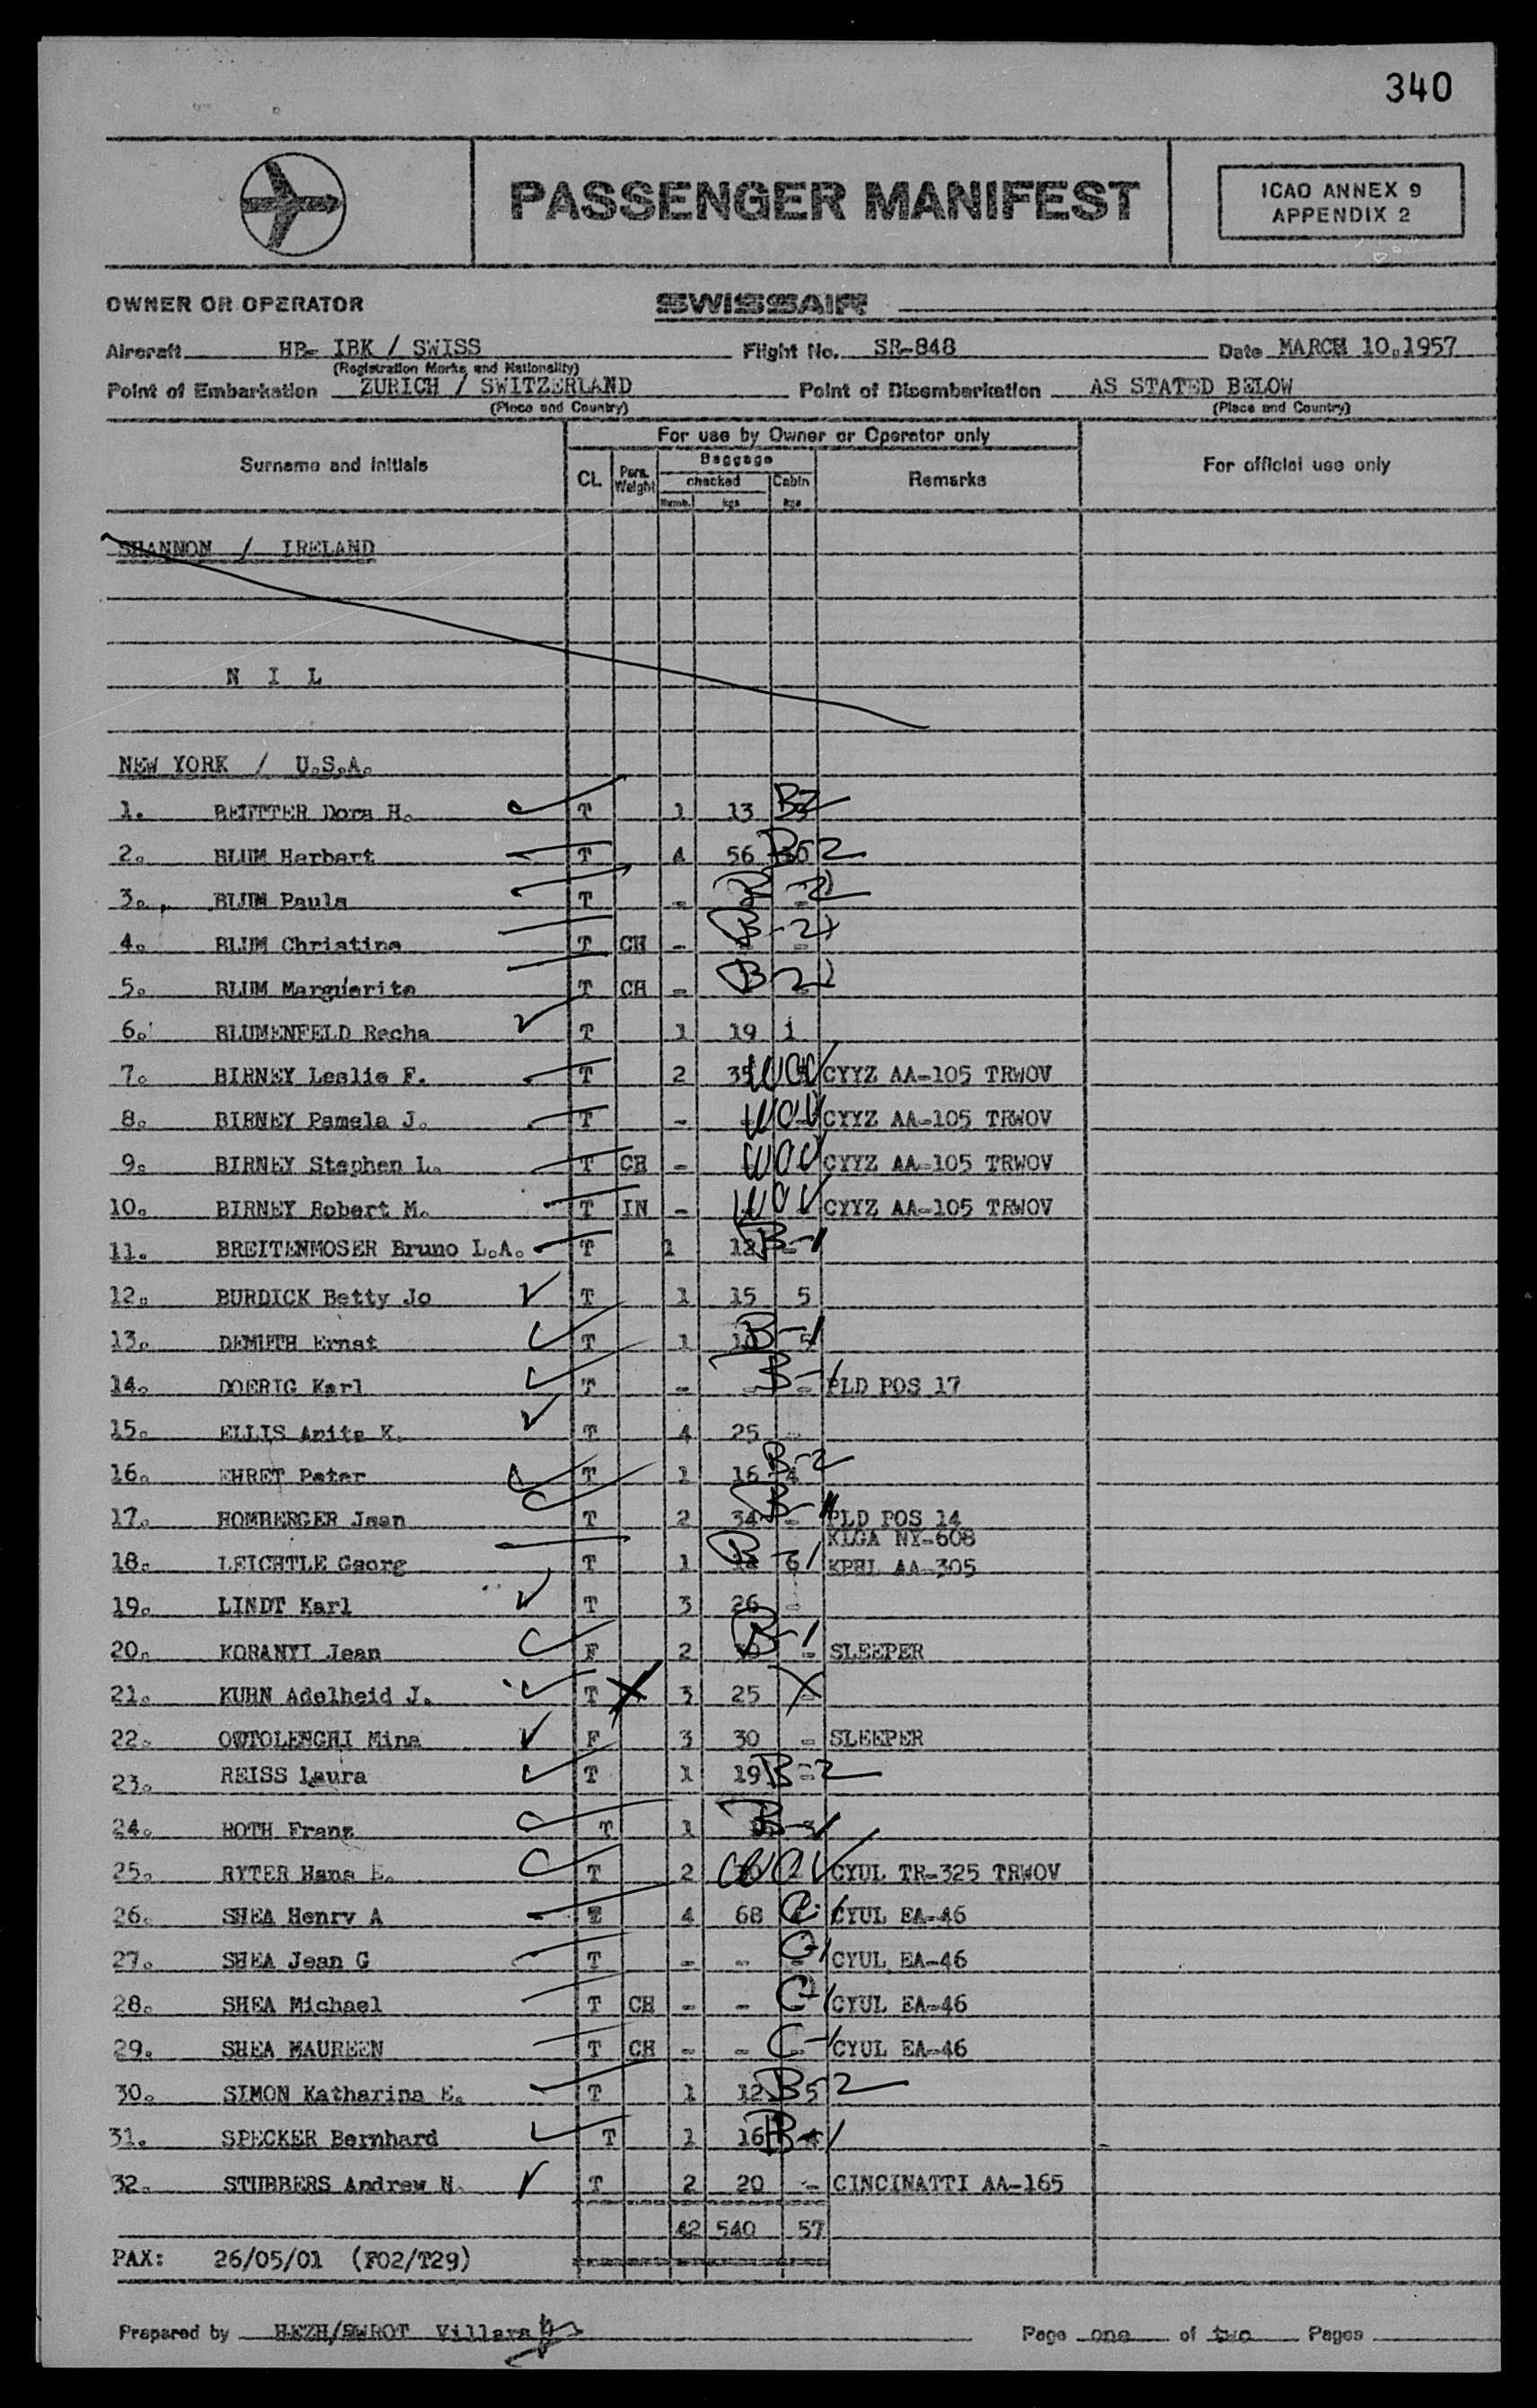 340
PASSENGER MANIFEST
ICAO ANNEX 9
APPENDIX 2
OWNER OR OPERATOR SWISSAIR
Aircraft HB- IBK / SWISS Flight No. SR-848 Date MARCH 10.1957
(Registration Marks and Nationality)
Point of Embarkation ZURICH / SWITZERLAND Point of Disembarkation AS STATED BELOW
(Place and Country) (Place and Country)
For use by Owner or Operator only
Surname and initials CL. Pers. Weight Baggage checked Numb. kgs Cabin kgs Remarks For official use only
SHANNON / IRELAND
N I L
NEW YORK / U.S.A.
1. BEUTTER Dora H. T 1 13 B2
2. BLUM Herbert T 4 56 B 2
3. BLUM Paula T - B -2
4. BLUM Christine T CH - B-2 -
5. BLUM Marguerite T CH - B-2
6. BLUMENFELD Recha T 1 19 1
7. BIRNEY Leslie F. T 2 35 WOV CYYZ AA-105 TRWOV
8. BIRNEY Pamela J. T - WOV CYYZ AA-105 TRWOV
9. BIRNEY Stephen L. T CH - WOV CYYZ AA-105 TRWOV
10. BIRNEY Robert M. T IN - WOV CYYZ AA-105 TRWOV
11. BREITENMOSER Bruno L.A. T 1 12 B-1
12. BURDICK Betty Jo T 1 15 5
13. DEMUTH Ernst T 1 B-1 5
14. DOERIG Karl T - B-1 - PLD POS 17
15. ELLIS Anita K. T 4 25 -
16. EHRET Peter T 1 16 4 B-2
17. HOMBERGER Jean T 2 34 B-1 - PLD POS 14
KLGA NY-608
18. LEICHTLE Georg T 1 B-1 6 KPHL AA-305
19. LINDT Karl T 3 26 -
20. KORANYI Jean F 2 B-1 - SLEEPER
21. KUHN Adelheid J. T X 3 25 X
22. OTTOLENGHI Mina F 3 30 - SLEEPER
23. REISS Laura T 1 19 B-2
24. ROTH Franz T 1 B-1
25. RYTER Hans E. T 2 WOV CYUL TR-325 TRWOV
26. SHEA Henry A T 4 68 C-1 CYUL EA-46
27. SHEA Jean G T - - C-1 CYUL EA-46
28. SHEA Michael T CH - - C-1 CYUL EA-46
29. SHEA MAUREEN T CH - - C-1 CYUL EA-46
30. SIMON Katharina E. T 1 12 5 B-2
31. SPECKER Bernhard T 1 16 B-1
32. STUBBERS Andrew N. T 2 20 - CINCINATTI AA-165
42 540 57
PAX: 26/05/01 (F02/T29)
Prepared by Villars Page one of two Pages